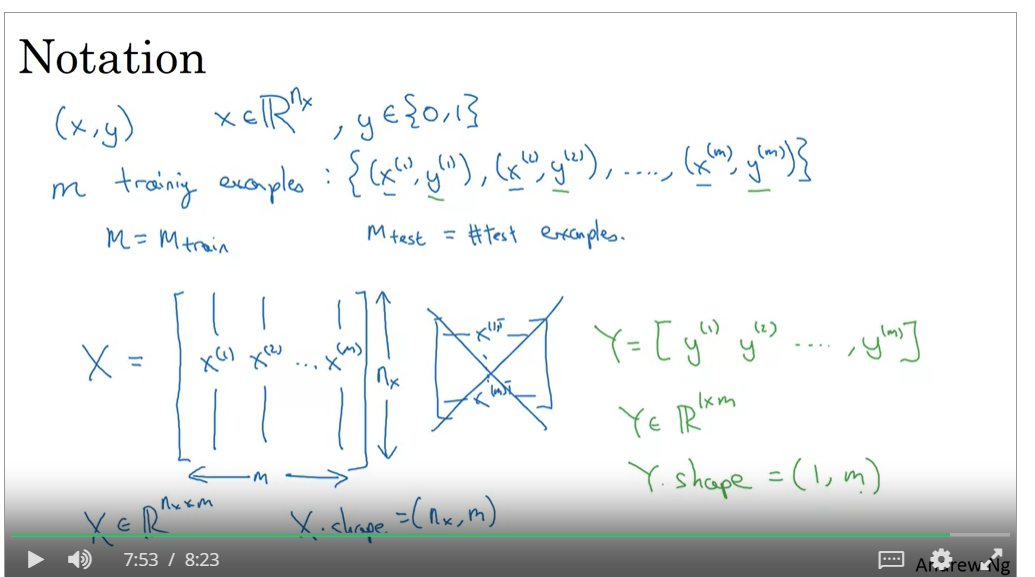 Notation
(x,y) x∈ℝ^{n_x}, y∈{0,1}
m training examples : {(x^{(1)}, y^{(1)}), (x^{(2)}, y^{(2)}), ...., (x^{(m)}, y^{(m)})}
M = M_{train} M_{test} = #test examples.
X = [x^{(1)} x^{(2)} ... x^{(m)}] n_x
m
x^{(1)T}
x^{(m)T}
Y = [y^{(1)} y^{(2)} ...., y^{(m)}]
Y ∈ ℝ^{1×m}
Y.shape = (1, m)
X ∈ ℝ^{n_x×m} X.shape = (n_x, m)
7:53 / 8:23
Andrew Ng